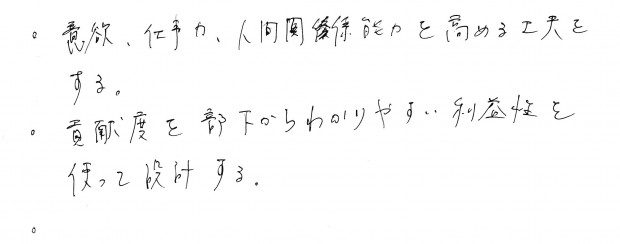 。意欲、仕事力、人間関係能力を高める工夫を
する。
。貢献度を部下からわかりやすい利益性を
使って設計する。
。